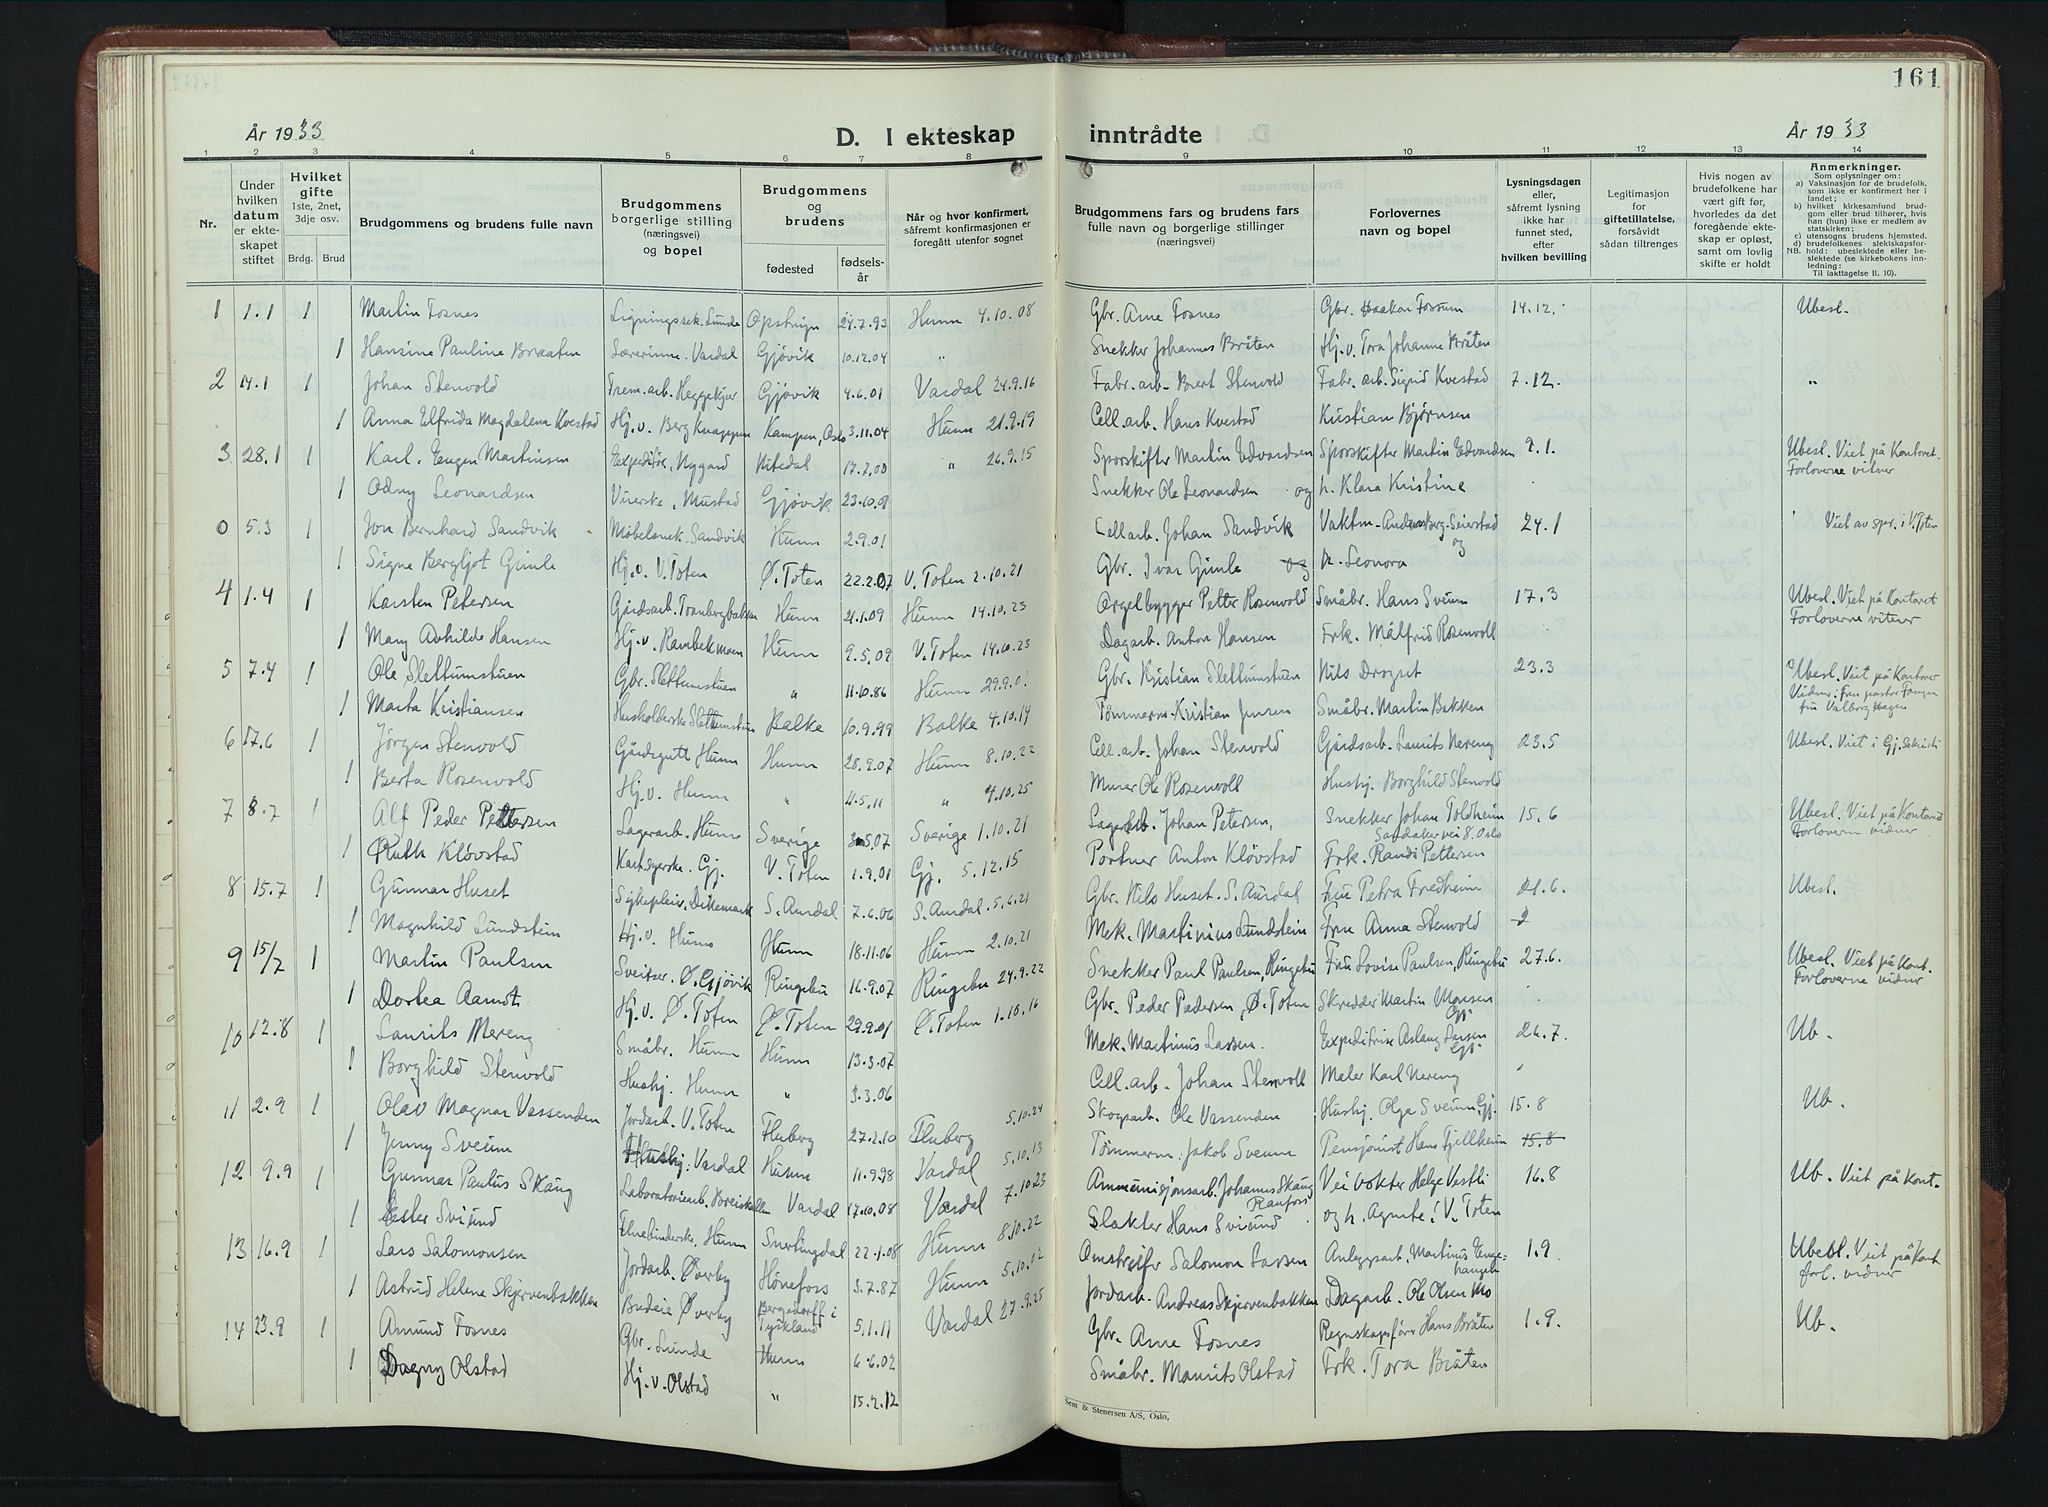 161
År 1933
D. I ekteskap inntrådte
År 1933
1 2 3 4 5 6 7 8 9 10 11 12 13 14
Nr.
Under hvilken datum er ekteskapet stiftet
Hvilket gifte 1ste, 2net, 3dje osv.
Brdg. Brud
Brudgommens og brudens fulle navn
Brudgommens borgerlige stilling (næringsvei) og bopel
Brudgommens og brudens
fødested
fødselsår
Når og hvor konfirmert, såfremt konfirmasjonen er foregått utenfor sognet
Brudgommens fars og brudens fars fulle navn og borgerlige stillinger (næringsvei)
Forlovernes navn og bopel
Lysningsdagen eller, såfremt lysning ikke har funnet sted, efter hvilken bevilling
Legitimasjon for giftetillatelse, forsåvidt sådan tiltrenges
Hvis nogen av brudefolkene har vært gift før, hvorledes da det foregående ekteskap er opløst, samt om lovlig skifte er holdt
Anmerkninger.
Som oplysninger om:
a) Vaksinasjon for de brudefolk. som ikke er konfirmert her i landet;
b) hvilket kirkesamfund brudgom eller brud tilhører, hvis han (hun) ikke er medlem av statskirken;
c) utensogns brudens hjemsted.
d) brudefolkenes slektskapsforhold: ubeslektede eller beslektede (se kirkebokens innledning:
NB.
Til iakttagelse II. 10).
1 1.1 1 Martin Fosnes Ligningssek. Lunde Opstryn 24.7.93 Hunn 4.10.08 Gbr. Arne Fosnes Gbr. Haakon Fossum 14.12. Ubesl.
1 Hansine Pauline Braaten Lærerinne. Vardal Gjøvik 10.12.04 " Snekker Johannes Bråten Hj.v. Tora Johanne Bråten
2 14.1 1 Johan Stenvold Hreggekjær Gjøvik 4.6.01 Vardal 24.9.16 Fabr. arb. Bernt Stenvold Fabr. arb. Sigrid Kvestad 7.12. "
1 Anna Elfrida Magdalena Kvestad Hj.v. Berg Knappen Kampen, Oslo 3.11.04 Hunn 21.9.19 Cell.arb. Hans Kvestad Kristian Bjørnsen
3 28.1 1 Karl. Eugen Martinsen Expeditør. Nygard Nitedal 17.7.00 " 26.9.15 Sporskifter Martin Edvardsen Sporskifter Martin Edvardsen 9.1. Ubesl. Viet på Kontoret. Forloverne vitner
1 Odny Leonardsen Mustad Gjøvik 23.10.01 Snekker Ole Leonardsen og h. Klara Kristine
0 5.3 1 Jon Bernhard Sandvik Møbelsnek. Sandvik Hunn 2.9.01 Cell arb. Johan Sandvik Vaktm. Anders Berg-Seierstad og 24.1 Viet av spr. i V. Toten
1 Signe Bergljot Gimle Hj.v. V. Toten Ø. Toten 22.2.07 V. Toten 2.10.21 Gbr. Ivar Gimle og h. Leonora
4 1.4 1 Karsten Petersen Gårdsarb. Tranbergbakken Hunn 21.1.09 Hunn 14.10.23 Orgelbygger Petter Rosenvold Småbr. Hans Sveum 17.3 Ubesl. Viet på Kontoret Forloverne vitner
1 Mary Hansen Hj.v. Rambekmoen Hunn 9.5.09 V. Toten 14.10.23 Dagarb. Anton Hansen Frk. Målfrid Rosenvoll
5 7.4 1 Ole Slettumstuen Gbr. Slettumstuen " 11.10.86 Hunn 29.9.01 Gbr. Kristian Slettumstuen Nils Drogset 23.3 Ubesl. Viet på Kontoret Vidner: Fru pastor Faugen fru Valborg Hagen
1 Marta Kristiansen Husholderske Slettumstuen Balke 10.9.99 Balke 4.10.14 Tømmerm. Kristian Jensen Småbr. Martin Bakken
6 17.6 1 Jørgen Stenvold Gårdsgutt Hunn Hunn 28.9.07 Hunn 8.10.22 Cell.arb. Johan Stenvold Gårdsarb. Laurits Nereng 23.5 Ubesl. Viet i Gj. Sakristi
1 Berta Rosenvold Hj.v. Hunn " 11.5.11 " 4.10.25 Murer Ole Rosenvoll Hushj. Borghild Stenvold
7 8.7 1 Alf Peder Pettersen Lagerarb. Hunn Sverige 3.5.07 Sverige 1.10.21 Lagerarb. Johan Petersen, Snekker Johan Toldheim Sandaker vei 8. Oslo 15.6 Ubesl. Viet på Kontoret Forloverne vidner
1 Ruth Kløvstad Gj. V. Toten 1.9.01 Gj. 5.12.15 Portner Anton Kløvstad Frk. Randi Pettersen
8 15.7 1 Gunnar Huset Sykepleier. Dikemark S. Aurdal 7.6.06 S. Aurdal 5.6.21 Gbr. Nils Huset. S. Aurdal Fru Petra Fredheim 21.6. Ubesl.
1 Magnhild Lundstein Hj.v. Hunn Hunn 18.11.06 Hunn 2.10.21 Mek. Martinius Lundstein Fru Anna Stenvold
9 15/7 1 Martin Paulsen Sveitser. Ø. Gjøvik Ringebu 16.9.07 Ringebu 24.9.22 Snekker Paul Paulsen, Ringebu Fru Lovise Paulsen, Ringebu 27.6. Ubesl. Viet på Kont. Forloverne vidner
1 Dortea Aamot Hj.v. Ø. Toten Ø. Toten 29.9.01 Ø. Toten 1.10.16 Gbr. Peder Pedersen, Ø. Toten Skredder Martin Monsen Gj.
10 12.8 1 Laurits Nereng Småbr. Hunn Hunn 13.3.07 Mek. Martinus Larsen. Expeditrise Aslaug Larsen Gj. 26.7. Ub.
1 Borghild Stenvold Hushj. Hunn " 3.3.06 Cell.arb. Johan Stenvoll Maler Karl Nereng
11 2.9 1 Olav Magnar Vassenden Jordarb. V. Toten Fluberg 27.2.10 Fluberg 5.10.24 Skogsarb. Ole Vassenden Hushj. Olga Sveum, Gj. 15.8 Ub.
1 Jenny Sveum Hushj. Vardal Hunn 11.9.98 Vardal 5.10.13 Tømmerm. Jakob Sveum Pensjonist Hans Fjellheim 15.8
12 9.9 1 Gunnar Paulus Skaug Laboratoriearb. Breiskallen Vardal 17.10.08 Vardal 7.10.23 Ammunisjonsarb. Johannes Skaug Raufoss Veivokter Helge Vestli 16.8 Ub. Viet på Kont.
1 Ester Sviund Hunn Snertingdal 22.1.08 Hunn 8.10.22 Slakter Hans Sviund og h. Agnete i V. Toten
13 16.9 1 Lars Salomonsen Jordarb. Øverby Hønefoss 3.7.87 Hunn 5.10.02 Salomon Larsen Anleggsarb. Martinus Engehaugen 1.9. Ubesl. Viet på Kont. forl. vidner
1 Astrid Helene Skjervenbakken Budeie Øverby Bergedorff i Tyskland 5.1.11 Vardal 27.9.25 Jordarb. Andreas Skjervenbakken Dagarb. Ole Olsen Mo
14 23.9 1 Amund Fosnes Gbr. Lunde Hunn 6.6.02 Gbr. Arne Fosnes Regnskapsfører Hans Bråten 1.9. Ub.
1 Dagny Olstad Hj.v. Olstad " 15.2.12 Småbr. Maurits Olstad Frk. Tora Bråten
Sem & Stenersen A/S, Oslo.